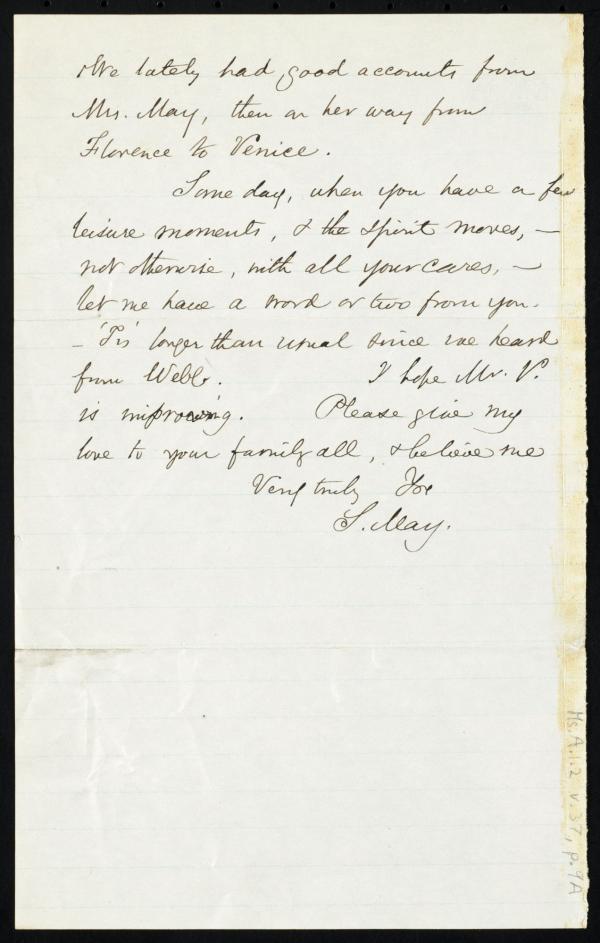 We lately had good accounts from
Mrs. May, then on her way from
Florence to Venice.
Some day, when you have a few
leisure moments, & the spirit moves, —
not otherwise, with all your cares, —
let me have a word or two from you.
— 'Tis longer than usual since we heard
from Webb. I hope Mr. V.
is improving. Please give my
love to your family all, & believe me
Very truly Yrs
S. May.
Ms.A.1.2 v.37, p.9A